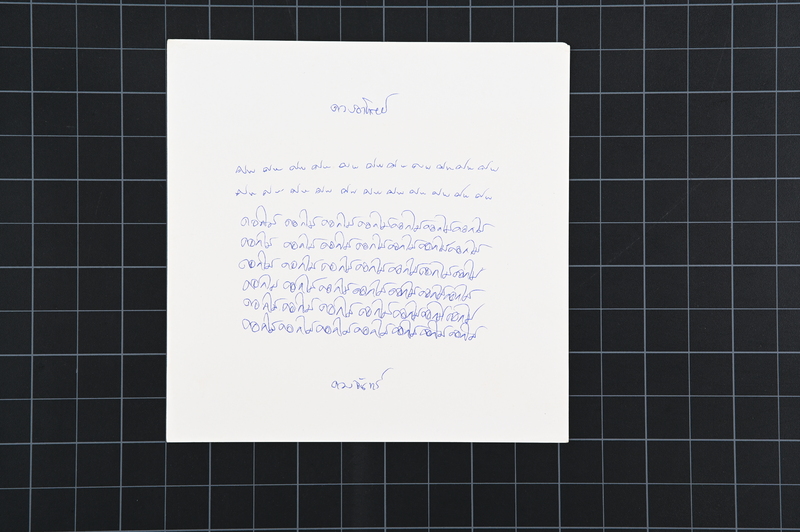 ดวงอาทิตย์
ฝน ฝน ฝน ฝน ฝน ฝน ฝน ฝน ฝน ฝน ฝน
ฝน ฝน ฝน ฝน ฝน ฝน ฝน ฝน ฝน ฝน ฝน
ดอกไม้ ดอกไม้ ดอกไม้ ดอกไม้ ดอกไม้ ดอกไม้ ดอกไม้
ดอกไม้ ดอกไม้ ดอกไม้ ดอกไม้ ดอกไม้ ดอกไม้ ดอกไม้
ดอกไม้ ดอกไม้ ดอกไม้ ดอกไม้ ดอกไม้ ดอกไม้ ดอกไม้
ดอกไม้ ดอกไม้ ดอกไม้ ดอกไม้ ดอกไม้ ดอกไม้ ดอกไม้
ดอกไม้ ดอกไม้ ดอกไม้ ดอกไม้ ดอกไม้ ดอกไม้ ดอกไม้
ดอกไม้ ดอกไม้ ดอกไม้ ดอกไม้ ดอกไม้ ดอกไม้ ดอกไม้
ดวงจันทร์